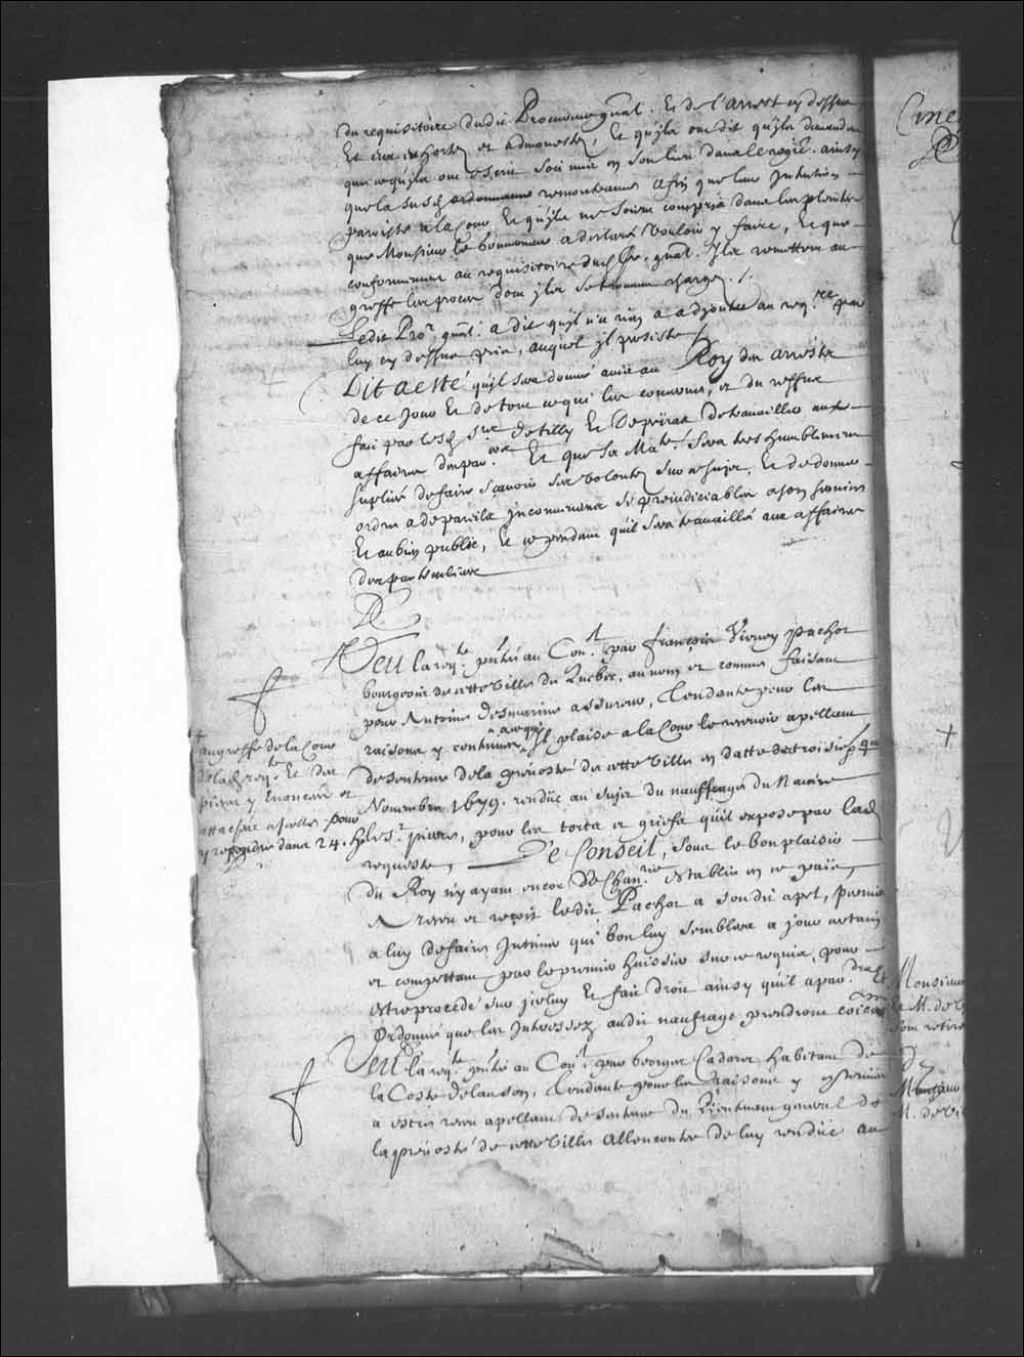 du requisitoire dudit Procureur gnal. Et de l'arrest cy dessus
Et eux exhortez et admonestez, Et qu'ils ont dit qu'ils demandent
que ce qu'ils ont escrit soit mis en son lieu dans le regre. ainsy
que la susd ordonnance remonstrances afin que leur Intention
paroisse a la Cour Et qu'ils ne soient compris dans les plaintes
que Monsieur le Gouverneur a declaré vouloir y faire, Et que
conformement au requisitoire dud Pr. gnal. Ils remettront au
greffe les procez dont ils se trouvent chargez ./.
Ledit Pror. gnal. a dit qu'il n'a rien a adjouter au reqre. par
luy cy dessus pris, auquel il persiste /
Dit a esté qu'il sera donné avis au Roy des arrests
de ce Jour Et de tout ce qui les concerne, et du reffus
fait par lesd srs. de Tilly Et Depeiras de travailler aux
affaires des parers. Et que Sa Maté. sera tres humblement
supliée de faire sçavoir ses volontez sur ce sujet, Et de donner
ordre a de pareils inconvenients si prejudiciables a son service
Et au bien public, Et cependant qu'il sera travaillé aux affaires
des particuliers
Veu la reqte. pntée au Conl. par François Vienay Pachot
bourgeois de cette Ville de Quebec, au nom et comme faisant
pour Antoine Desmarins assureur, Tendante pour les
raisons y contenues a ce qu'il plaise a la Cour le recevoir apellant
de sentence de la prevosté de cette Ville en datte du troisiesme
Novembre 1679. rendüe au sujet du nauffrage du Navire
pour les torts et griefs qu'il expose par lad
requeste, Le Conseil, sous le bon plaisir
du Roy n'y ayant encor de Chanrie. establie en ce païs,
A receu et reçoit ledit Pachot a son dit apel, permis
a luy de faire Intimer qui bon luy semblera a jour certain
et competant par le premier huissier sur ce requis, pour
estre procedé sur iceluy Et fait droit ainsy qu'il apardra. Et
Ordonné que les Interessez audit naufrage prendront coion
au greffe de la Cour
de lad reqte. Et des
pieces y Enoncées et
attachées a icelle pour
y repondre dans 24. h
Veu la reqte. pntée au Conl. par George Cadoret habitant de
la Coste de Lauson, Tendante pour les raisons y contenües
a estre receu apellant de sentence du Lieutenant general de
la prevosté de cette Ville Allencontre de luy rendüe au